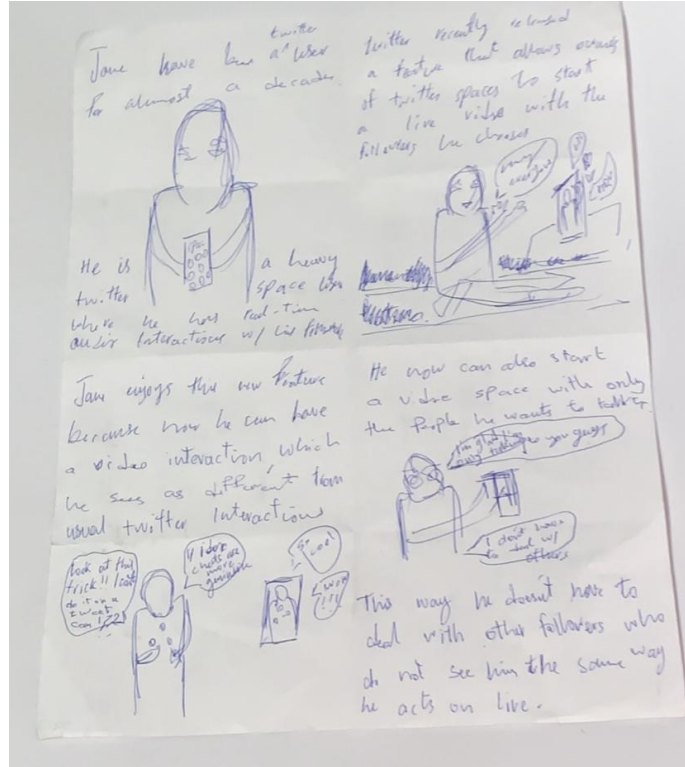 Jane have been a twitter user
for almost a decade.
He is a heavy
twitter space user
where he has real-time
audio interactions w/ his followers
twitter recently released
a feature that allows owners
of twitter spaces to start
a live video with the
followers he chooses
everyone
Jane enjoys the new feature
because now he can have
a video interaction, which
he sees as different from
usual twitter interactions
Look at that
trick!! I can't
do it on a
tweet
can I
chats are
more
So
cool
wow
!!!
He now can also start
a video space with only
the people he wants to
I'm glad I'm
only talking to you guys
I don't have
to deal w/
others
This way he doesn't have to
deal with other followers who
do not see him the same way
he acts on live.